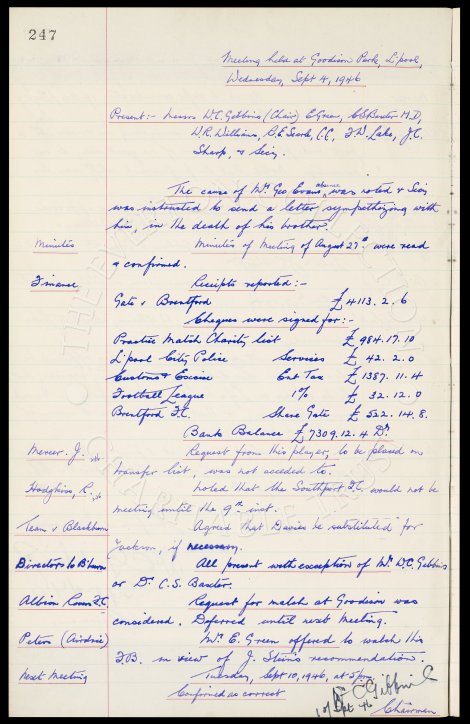 247
Meeting held at Goodison Park, L'pool,
Wednesday, Sept 4, 1946
Present:- Messrs W.C. Gibbins (Chair) E. Green, C.S. Baxter M.D,
W.R. Williams, R.E. Searle, C.C, F.W. Lake, J.C.
Sharp, & Secy.
The cause of Mr Geo. Evans absence was noted & Secy
was instructed to send a letter sympathizing with
him, in the death of his brother.
Minutes Minutes of Meeting of August 27th were read
& confirmed.
Finance Receipts reported:-
Gate v Brentford £4113.2.6
Cheques were signed for:-
Practice Match Charity list £984.17.10
L'pool City Police Services £42.2.0
Customs & Excise Ent Tax £1387.11.4
Football League 1% £32.12.0
Brentford F.C. Share Gate £522.14.8.
Bank Balance £7309.12.4 Dr
Mercer. J. Request from this player, to be placed on
transfer list, was not acceded to.
Hodgkins, R. Noted that the Southport F.C. would not be
meeting until the 9th inst.
Team v Blackburn Agreed that Davies be substituted for
Jackson, if necessary.
Directors to B'burn All present with exception of Mr W.C. Gibbins
or Dr. C.S. Baxter.
Albion Rovers F.C. Request for match at Goodison was
considered. Deferred until next Meeting.
Peters (Airdrie) Mr. E. Green offered to watch this
F.B. in view of J. Stein's recommendation.
Next Meeting Tuesday, Sept 10, 1946, at 5pm.
Confirmed as correct
W C Gibbins
Sept 46 Chairman